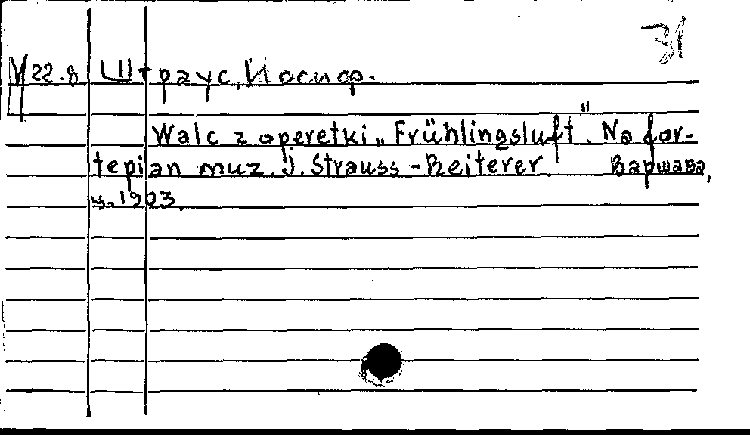 31
22.8 Штраус, Иосиф.
Walc z operetki „Frühlingsluft". Na for-
tepian muz. J. Strauss - Reiterer. Варшава,
1903.